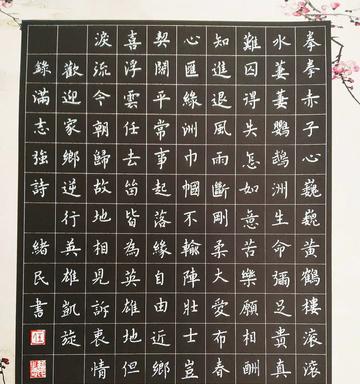 拳拳赤子心巍巍黄鶴樓滾滾
水萋萋鸚鵡洲生命彌足貴真
難囚得失怎如意苦樂願相酬
知進退風雨斷剛柔大愛布春
心匯綠洲巾幗不輸陣壯士豈
契闊平常事起落緣自由近鄉
喜浮雲任去留皆為英雄地但
淚流今朝歸故地相見訴衷情
歡迎家鄉逆行英雄凱旋
錄滿志強詩 緒民書